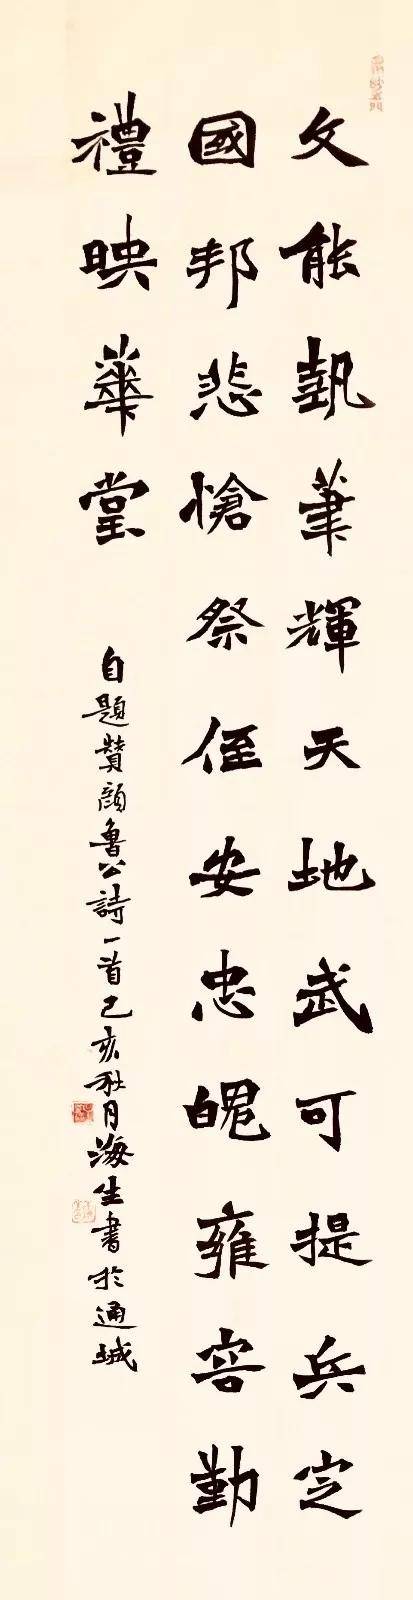 文能執筆輝天地武可提兵定
國邦悲愴祭侄安忠魄雍容勤
禮映華堂
自題贊顏魯公詩一首己亥秋月海生書於通城